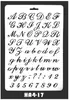 A B C D E F G
H I J K L M N
O P Q R S T
U V W X Y Z
a b c d e f g h i
j k l m n o p q r
s t u v w x y z
1 2 3 4 5 6 7 8 9 0